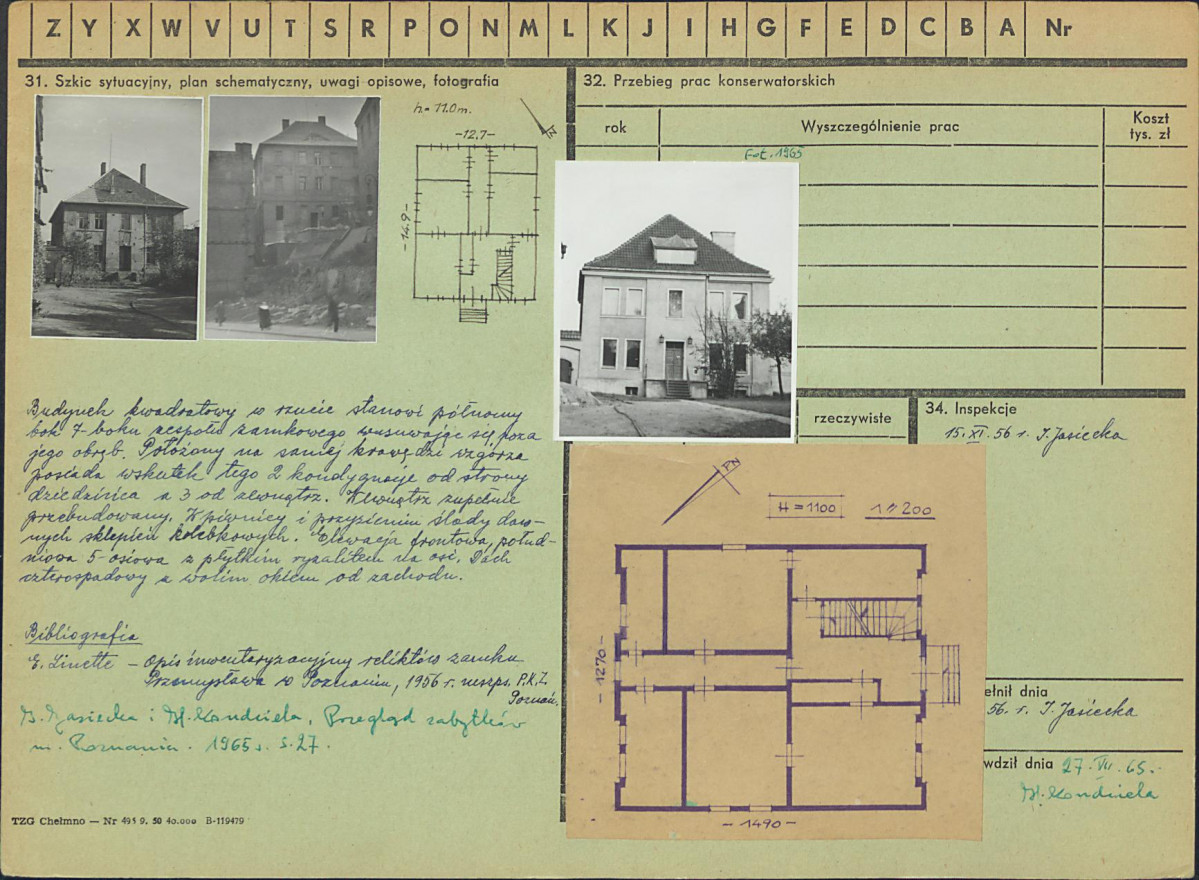 Z Y X W V U T S R P O N M L K J I H G F E D C B A Nr
31. Szkic sytuacyjny, plan schematyczny, uwagi opisowe, fotografia
h = 11.0 m.
N
-12,7-
-14.9-
Budynek kwadratowy w rzucie stanowi północny
bok 7-boku zespołu zamkowego wysuwając się poza
jego obręb. Położony na samej krawędzi wzgórza
posiada wskutek tego 2 kondygnacje od strony
dziedzińca a 3 od zewnątrz. Wewnątrz zupełnie
przebudowany. W piwnicy i przyziemiu ślady daw-
nych sklepień kolebkowych. Elewacja frontowa, połud-
niowa 5-osiowa z płytkim ryzalitem na osi. Dach
czterospadowy z wolim okiem od zachodu.
Bibliografia
E. Linette - Opis inwentaryzacyjny reliktów zamku
Przemysława w Poznaniu, 1956 r. maszps. P.K.Z.
Poznań.
i H. Kondziela, Przegląd zabytków
m. Poznania. 1965 r. s. 27.
TZG Chełmno — Nr 495 9. 50 40.000 B-119479
32. Przebieg prac konserwatorskich
rok
Wyszczególnienie prac
Koszt
tys. zł
Fot. 1965
rzeczywiste
34. Inspekcje
15. XI. 56 r. I. Jasiecka
PN
H = 1100
1:200
-1270-
-1490-
ełnił dnia
56. r. I. Jasiecka
wdził dnia 27. VII. 65.-
H. Kondziela